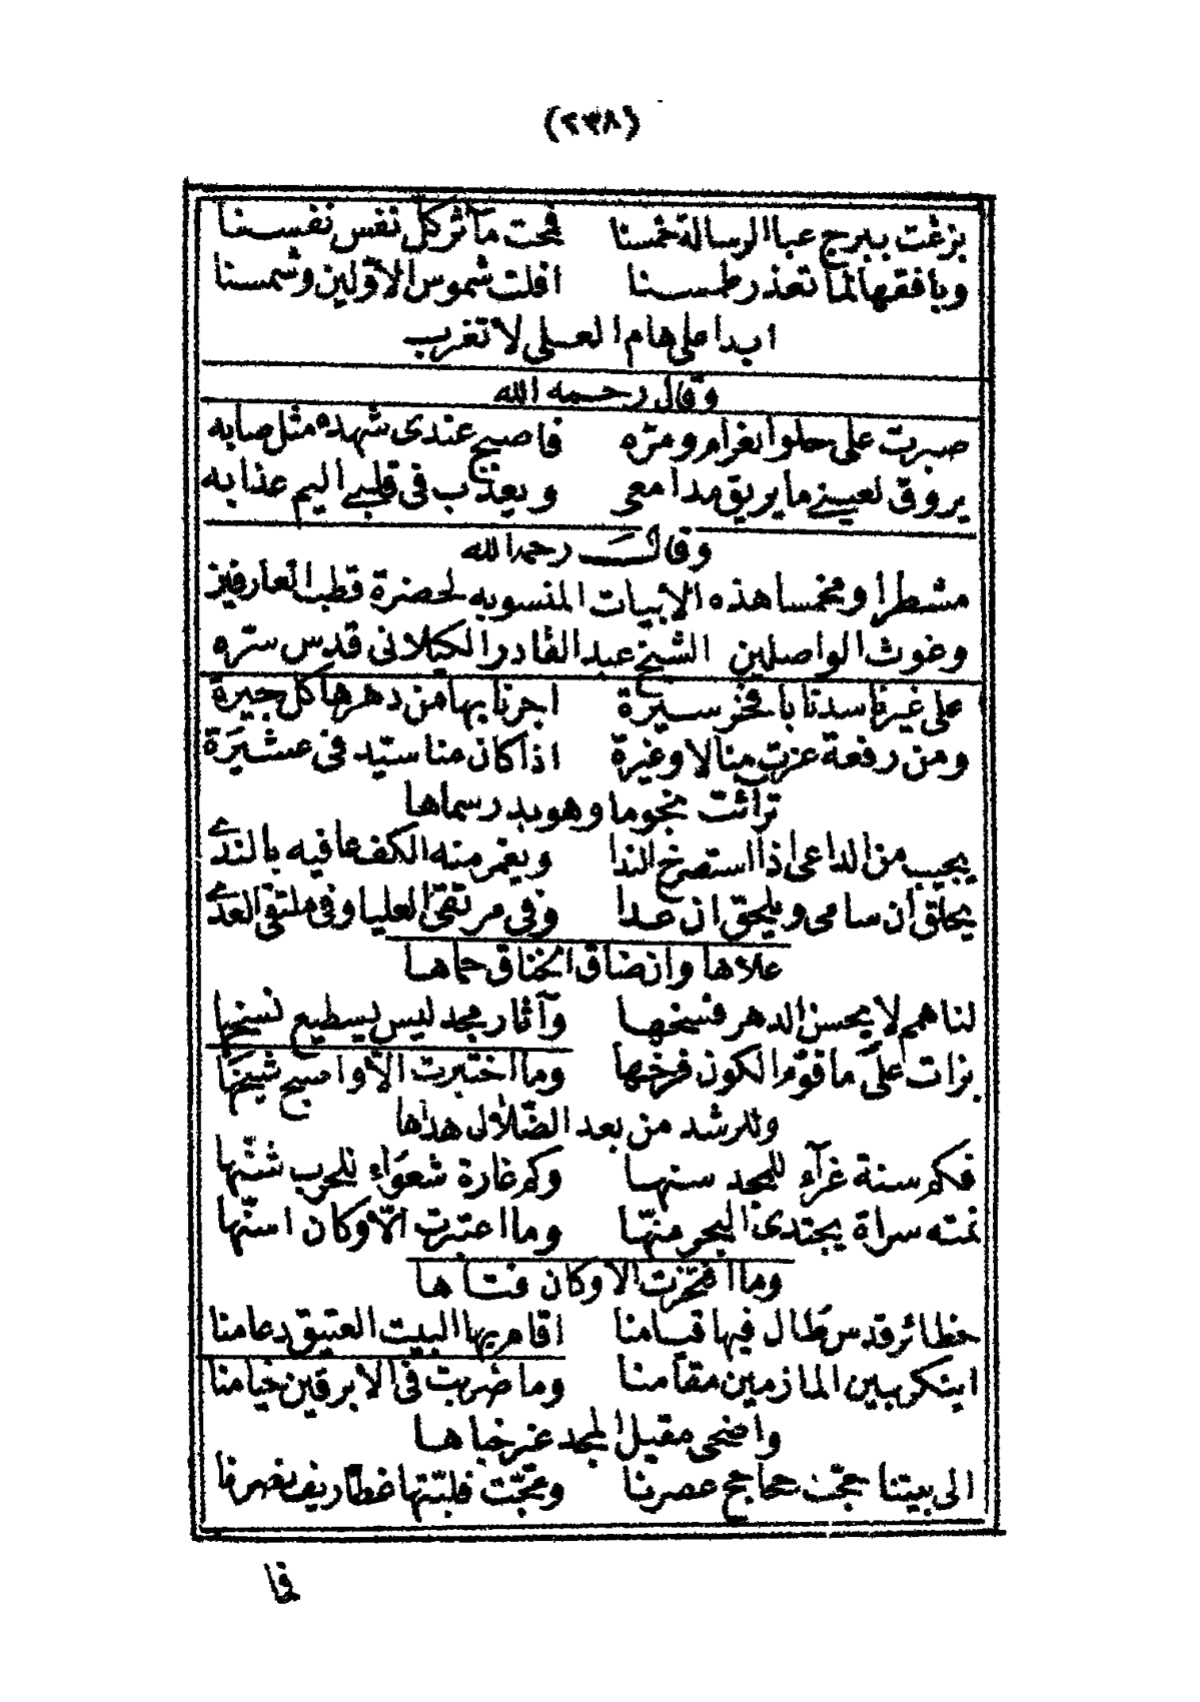 (٢٣٨)
بزغت ببرج عبا الرسالة خمسنا فمحت مآثر كل نفس نفسنا
وبافقها لما تعذر طمسنا افلت شموس الاولين وشمسنا
ابدا على هام العلى لا تغرب
وقال رحمه الله
صبرت على حلو الغرام ومرّه فاصبح عندى شهده مثل صابه
يروق لعيني ما يريق مدامعى ويعذب فى قلبي اليم عذابه
وقال رحمه الله
مشطرا ومخمسا هذه الابيات المنسوبه لحضرة قطب العارفين
وغوث الواصلين الشيخ عبد القادر الكيلانى قدس سرّه
على غيرنا سدنا بافخر سيرة اجرنا بها من دهرها كل جيرة
ومن رفعة عزت منالا وغيرة اذا كان منا سيّد فى عشيرة
ترآئت نجوما وهو بدر سماها
يجيب من الداعى اذا استصرخ الندا ويغمر منه الكف عافيه بالندى
يحلق ان سامى ويلحق ان عدا وفى مرتقى العليا وفى ملتقى العدى
علاها وان ضاق الخناق حماها
لنا همم لا يحسن الدهر فسخها وآثار مجد ليس يسطيع نسخها
بزات على ما قوّم الكون فرخها وما اختبرت الا واصبح شيخها
وللرشد من بعد الضلال هداها
فكم سنة غرآء للمجد سنها وكم غارة شعواء للحرب شنّها
نمته سراة يجتدى البحر منها وما اعتبرت الّا وكان اسنّها
وما افتخرت الا وكان فتاها
حظائر قدس طال فيها قيامنا اقام بها البيت العتيق دعامنا
اينكر بين المازمين مقامنا وما ضربت فى الابرقين خيامنا
واضحى مقيل المجد غير خباها
الى بيتنا حجت حجاجح عصرنا وعجّت فلبّتها غطاريف فهرنا
فا